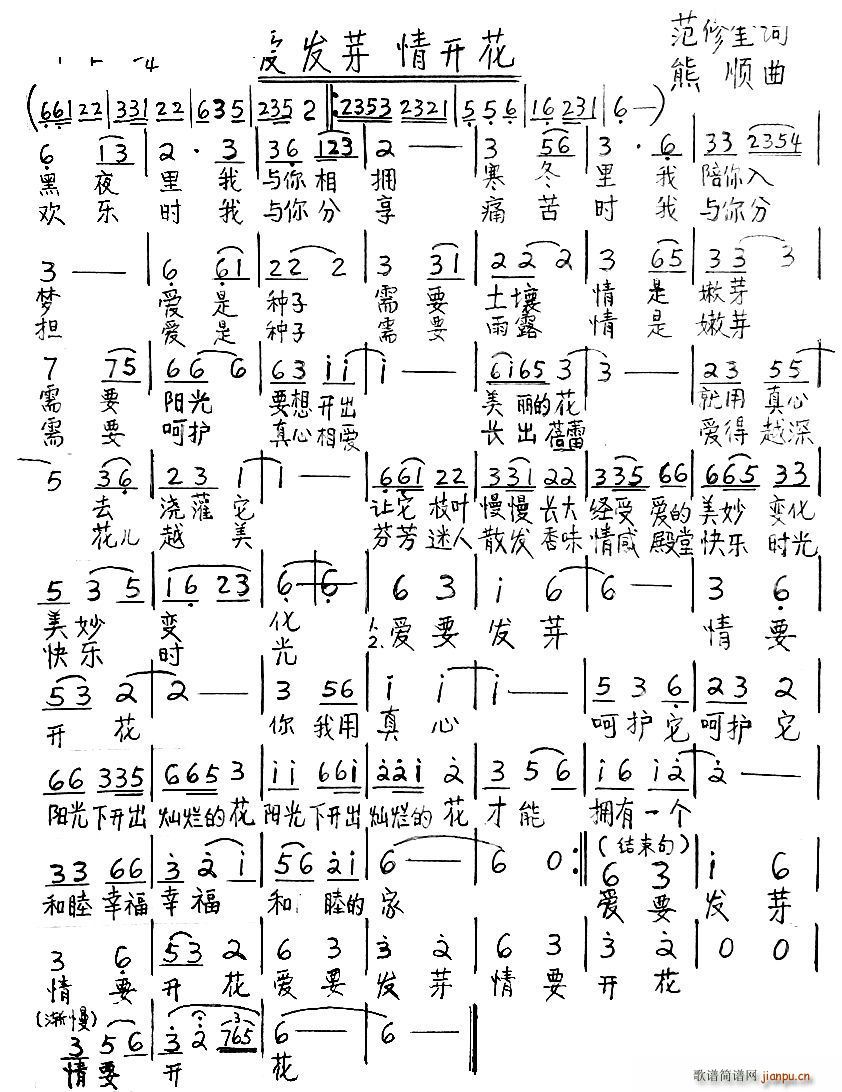 爱发芽 情开花
范修奎词
熊 顺曲
(661 22 | 331 22 | 635 | 235 2 ‖: 2353 2321 | 5 5 6 | 16 231 | 6 — )
6 13 | 2 · 3 | 36 123 | 2 — | 3 56 | 3 · 6 | 33 2354
黑 夜 里 我 与你 相 拥 寒 冬 里 我 陪你 入
欢 乐 时 我 与你 分 享 痛 苦 时 我 与你 分
3 — | 6 61 | 22 2 | 3 31 | 22 2 | 3 65 | 33 3
梦 爱 是 种子 需 要 土壤 情 是 嫩芽
担 爱 是 种子 需 要 雨露 情 是 嫩芽
7 75 | 66 6 | 63 ii | i — | 6i65 3 | 3 — | 23 55
需 要 阳光 要想 开出 美丽的花 就用 真心
需 要 呵护 真心 相爱 长出蓓蕾 爱得 越深
5 36 | 23 1 | 1 — | 661 22 | 331 22 | 335 66 | 665 33
去 浇灌 它 让它 枝叶 慢慢 长大 经受 爱的 美妙 变化
花儿 越 美 芬芳 迷人 散发 香味 情感 殿堂 快乐 时光
5 3 5 | 16 23 | 6 — | 6 — | 6 3 | i 6 | 6 — | 3 6
美妙 变 化 1. 爱 要 发 芽 情 要
快乐 时 光 2.
53 2 | 2 — | 3 56 | i i | i — | 5 3 6 | 23 2
开 花 你 我用 真 心 呵护它 呵护它
66 335 | 665 3 | ii 66i | 22i 2 | 3 56 | i6 i2 | 2 —
阳光 下开出 灿烂的花 阳光 下开出 灿烂的 花 才能 拥有 一个
(结束句)
33 66 | 3 2 i | 56 2i | 6 — | 6 0 :‖ 6 3 | i 6
和睦 幸福 幸福 和 睦的 家 爱 要 发 芽
3 6 | 53 2 | 6 3 | 3 2 | 6 3 | 3 2 | 0 0
情 要 开 花 爱 要 发 芽 情 要 开 花
(渐慢)
3 56 | 3 2 765 | 6 — | 6 — ‖
情要 开 花
歌谱简谱网
jianpu.cn